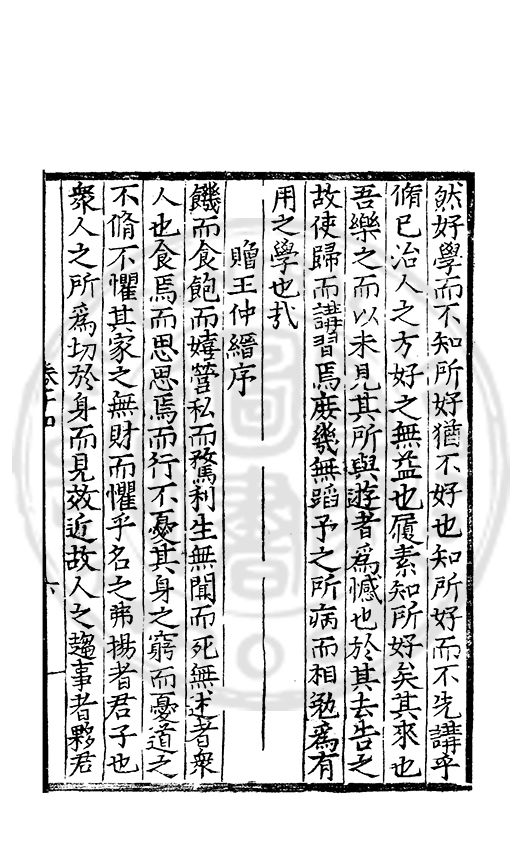 然好學而不知所好猶不好也知所好而不先講乎
脩已治人之方好之無益也履素知所好矣其來也
吾樂之而以未見其所與遊者爲憾也於其去告之
故使歸而講習焉庻幾無蹈予之所病而相勉爲有
用之學也㢤
贈王仲縉序
饑而食飽而嬉營私而騖利生無聞而死無述者衆
人也食焉而思思焉而行不憂其身之窮而憂道之
不脩不懼其家之無財而懼乎名之弗揚者君子也
衆人之所爲切於身而見效近故人之趨事者夥君
卷十四
六